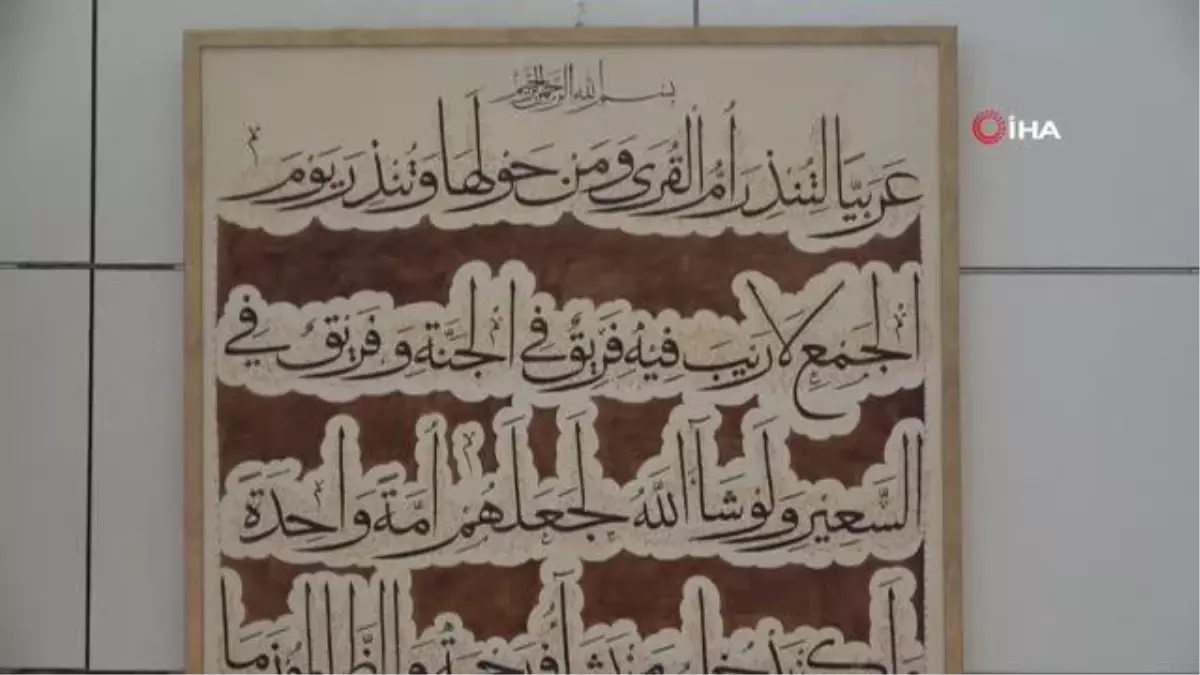 بسم الله الرحمن الرحيم
İHA
عَرَبِيًّا لِتُنْذِرَ أُمَّ الْقُرَى وَمَنْ حَوْلَهَا وَتُنْذِرَ يَوْمَ
الْجَمْعِ لَا رَيْبَ فِيهِ فَرِيقٌ فِي الْجَنَّةِ وَفَرِيقٌ فِي
السَّعِيرِ وَلَوْ شَاءَ اللَّهُ لَجَعَلَهُمْ أُمَّةً وَاحِدَةً